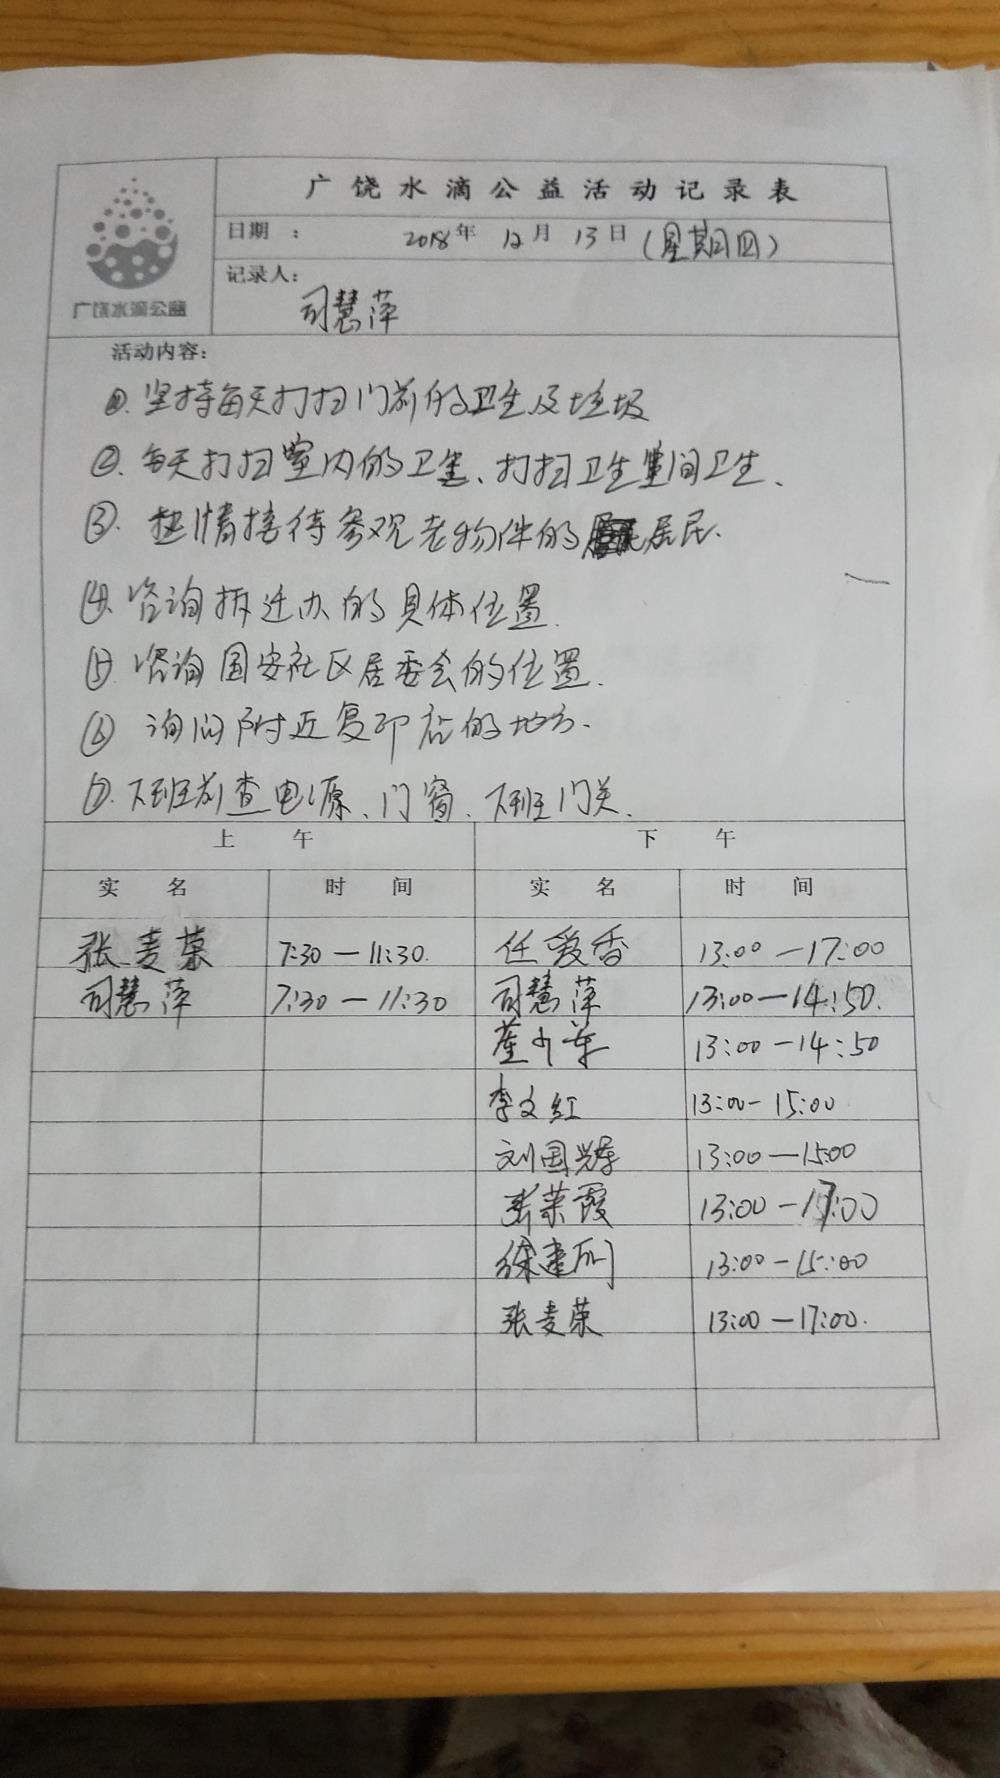 广饶水滴公益活动记录表
广饶水滴公益
日期: 2018年 12月 13日(星期四)
记录人:
司慧萍
活动内容:
①.坚持每天打扫门前的卫生及垃圾
②.每天打扫室内的卫生、打扫卫生间卫生.
③.热情接待参观老物件的居民.
④.咨询拆迁办的具体位置.
⑤.咨询国安社区居委会的位置.
⑥ 询问附近复印店的地方.
⑦.下班前查电源、门窗.下班门关.
上 午 下 午
实 名 时 间 实 名 时 间
张麦荣 7:30—11:30. 任爱香 13:00—17:00
司慧萍 7:30—11:30 司慧萍 13:00—14:50.
13:00—14:50
李文红 13:00-15:00
刘国辉 13:00—15:00
张荣霞 13:00—17:00
徐建 13:00—15:00
张麦荣 13:00—17:00.